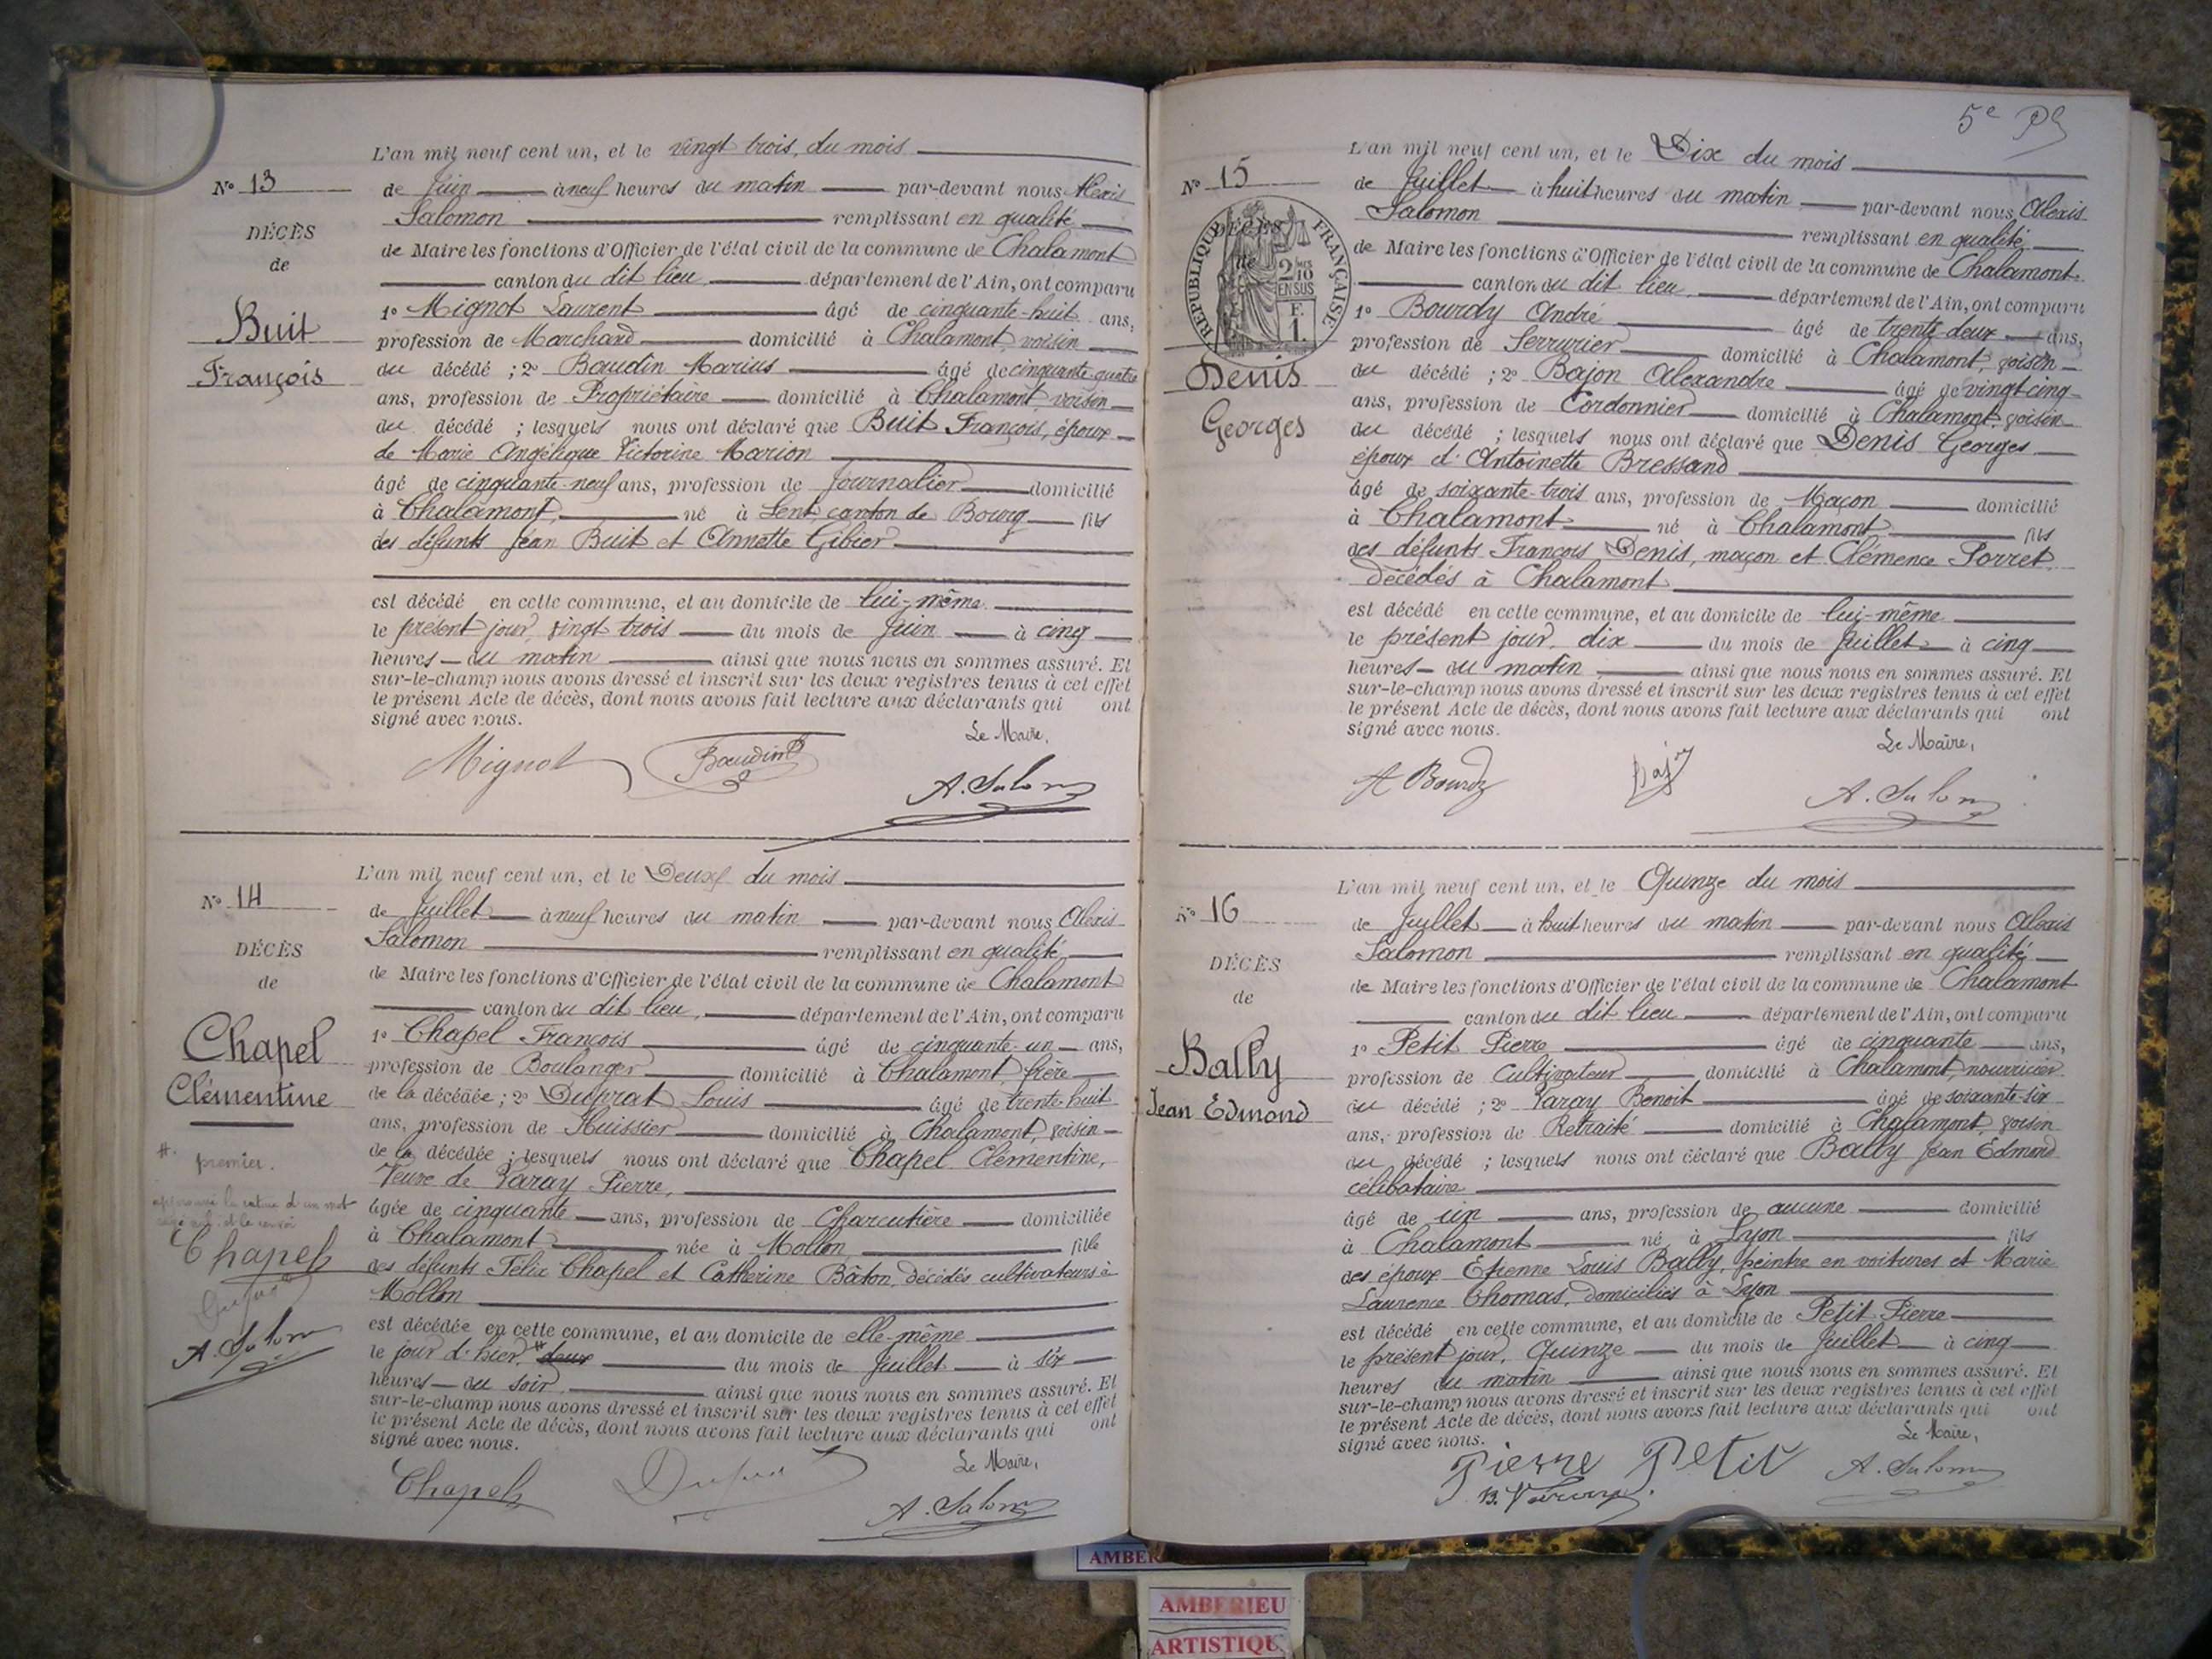 L'an mil neuf cent un, et le vingt trois, du mois
N° 13
de Juin à neuf heures du matin par-devant nous Alexis
Salomon remplissant en qualité
DÉCÈS
de Maire les fonctions d'Officier de l'état civil de la commune de Chalamont
de
canton du dit lieu, département de l'Ain, ont comparu
1° Mignot Laurent âgé de cinquante-huit ans,
Buit
profession de Marchand domicilié à Chalamont, voisin
François
du décédé ; 2° Baudin Marius âgé de cinquante quatre
ans, profession de Propriétaire domicilié à Chalamont, voisin
du décédé ; lesquels nous ont déclaré que Buit François, époux
de Marie Angélique Victorine Marion
âgé de cinquante-neuf ans, profession de Journalier domicilié
à Chalamont, né à Lent, canton de Bourg fils
des défunts Jean Buit et Annette Gibier
est décédé en cette commune, et au domicile de lui-même
le présent jour, vingt trois du mois de Juin à cinq
heures du matin ainsi que nous nous en sommes assuré. Et
sur-le-champ nous avons dressé et inscrit sur les deux registres tenus à cet effet
le présent Acte de décès, dont nous avons fait lecture aux déclarants qui ont
signé avec nous.
Le Maire,
Mignot Baudin A. Salomon
L'an mil neuf cent un, et le Deux du mois
N° 14
de Juillet à neuf heures du matin par-devant nous Alexis
Salomon remplissant en qualité
DÉCÈS
de Maire les fonctions d'Officier de l'état civil de la commune de Chalamont
de
canton du dit lieu, département de l'Ain, ont comparu
1° Chapel François âgé de cinquante-un ans,
Chapel
profession de Boulanger domicilié à Chalamont, frère
Clémentine
de la décédée ; 2° Duprat Louis âgé de trente-huit
ans, profession de Huissier domicilié à Chalamont, voisin
de la décédée ; lesquels nous ont déclaré que Chapel Clémentine,
premier.
Veuve de Varay Pierre,
âgée de cinquante ans, profession de Charcutière domiciliée
à Chalamont née à Mollon fille
Chapel
des défunts Félix Chapel et Catherine Bâton, décédés cultivateurs à
Mollon
est décédée en cette commune, et au domicile de elle-même
A. Salomon
le jour d'hier, deux du mois de Juillet à six
heures du soir, ainsi que nous nous en sommes assuré. Et
sur-le-champ nous avons dressé et inscrit sur les deux registres tenus à cet effet
le présent Acte de décès, dont nous avons fait lecture aux déclarants qui ont
signé avec nous.
Le Maire,
Chapel Duprat A. Salomon
5e
L'an mil neuf cent un, et le Dix du mois
N° 15
de Juillet à huit heures du matin par-devant nous Alexis
Salomon remplissant en qualité
RÉPUBLIQUE FRANÇAISE
DÉCÈS
de
2/10 EN SUS
F.
1.
de Maire les fonctions d'Officier de l'état civil de la commune de Chalamont
canton du dit lieu, département de l'Ain, ont comparu
1° Bourdy André âgé de trente-deux ans,
profession de Serrurier domicilié à Chalamont, voisin
Denis
du décédé ; 2° Bajon Alexandre âgé de vingt-cinq
ans, profession de Cordonnier domicilié à Chalamont, voisin
Georges
du décédé ; lesquels nous ont déclaré que Denis Georges
époux d'Antoinette Bressand
âgé de soixante-trois ans, profession de Maçon domicilié
à Chalamont né à Chalamont fils
des défunts François Denis, maçon et Clémence Porret,
décédés à Chalamont
est décédé en cette commune, et au domicile de lui-même
le présent jour, dix du mois de Juillet à cinq
heures du matin ainsi que nous nous en sommes assuré. Et
sur-le-champ nous avons dressé et inscrit sur les deux registres tenus à cet effet
le présent Acte de décès, dont nous avons fait lecture aux déclarants qui ont
signé avec nous.
Le Maire,
A Bourdy Bajon A. Salomon
L'an mil neuf cent un, et le Quinze du mois
N° 16
de Juillet à huit heures du matin par-devant nous Alexis
Salomon remplissant en qualité
DÉCÈS
de Maire les fonctions d'Officier de l'état civil de la commune de Chalamont
de
canton du dit lieu département de l'Ain, ont comparu
1° Petit Pierre âgé de cinquante ans,
Bally
profession de Cultivateur domicilié à Chalamont, nourricier
Jean Edmond
du décédé ; 2° Varay Benoit âgé de soixante-six
ans, profession de Retraité domicilié à Chalamont, voisin
du décédé ; lesquels nous ont déclaré que Bally Jean Edmond
célibataire
âgé de un ans, profession de aucune domicilié
à Chalamont né à Lyon fils
des époux Etienne Louis Bally, peintre en voitures et Marie
Laurence Thomas, domiciliés à Lyon
est décédé en cette commune, et au domicile de Petit Pierre
le présent jour, Quinze du mois de Juillet à cinq
heures du matin ainsi que nous nous en sommes assuré. Et
sur-le-champ nous avons dressé et inscrit sur les deux registres tenus à cet effet
le présent Acte de décès, dont nous avons fait lecture aux déclarants qui ont
signé avec nous.
Le Maire,
Pierre Petit A. Salomon
B. Varay
AMBER
AMBERIEU
ARTISTIQU